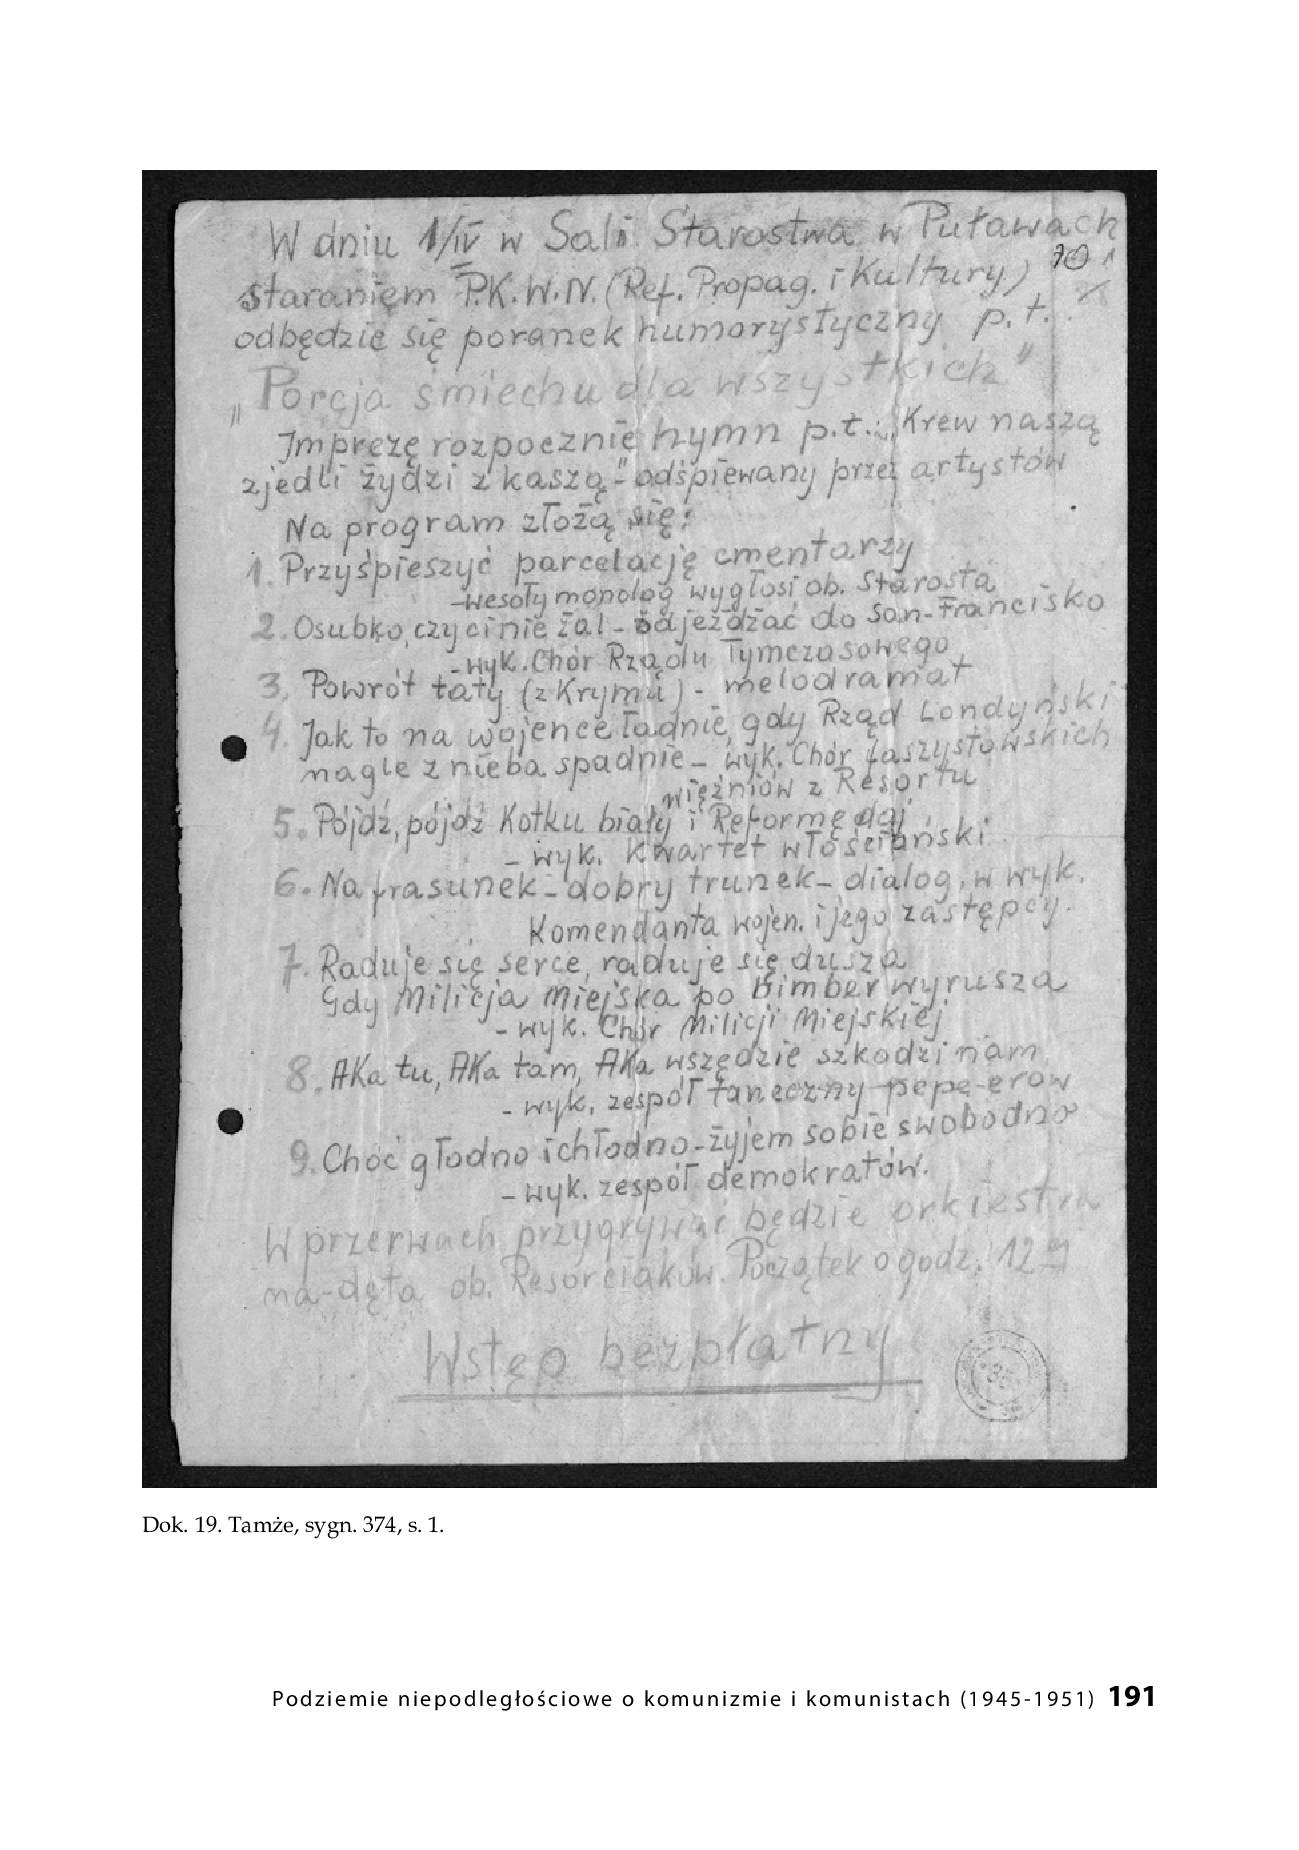 W dniu 1/IV w Sali Starostwa w Puławach
70
staraniem P.K.W.N. (Ref. Propag. i Kultury)
odbędzie się poranek humorystyczny p.t.
„Porcja śmiechu dla wszystkich"
Imprezę rozpocznie hymn p.t. „Krew naszą
zjedli żydzi z kaszą" - odśpiewany przez artystów
Na program złożą się:
1. Przyśpieszyć parcelację cmentarzy
- wesoły monolog wygłosi ob. Starosta
2. Osubko, czy ci nie żal - odjeżdżać do San-Francisko
- wyk. Chór Rządu Tymczasowego
3. Powrót taty (z Krymu) - melodramat
4. Jak to na wojence ładnie, gdy Rząd Londyński
nagle z nieba spadnie - wyk. Chór faszystowskich
więźniów z Resortu
5. Pójdź, pójdź Kotku biały i Reformę daj
- wyk. Kwartet włościański
6. Na frasunek - dobry trunek - dialog, w wyk.
Komendanta wojen. i jego zastępcy.
7. Raduje się serce, raduje się dusza
Gdy Milicja Miejska po Bimber wyrusza
- wyk. Chór Milicji Miejskiej
8. AKa tu, AKa tam, AKa wszędzie szkodzi nam
- wyk. zespół taneczny pepe-erów
9. Choć głodno i chłodno - żyjem sobie swobodno
- wyk. zespół demokratów.
W przerwach przygrywać będzie orkiestra
na-dęta ob. Resorciaków. Początek o godz. 12
Wstęp bezpłatny
Dok. 19. Tamże, sygn. 374, s. 1.
Podziemie niepodległościowe o komunizmie i komunistach (1945-1951) 191